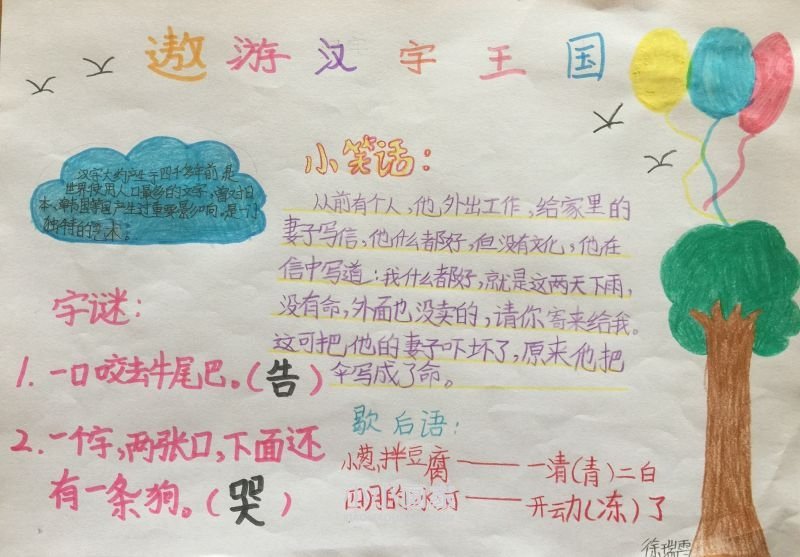 遨游汉字王国
汉字大约产生于四千多年前,是
世界使用人口最多的文字,曾对日
本、韩国等国产生过重要影响。是一门
独特的艺术。
小笑话:
从前有个人,他外出工作,给家里的
妻子写信,他什么都好,但没有文化,他在
信中写道:我什么都好,就是这两天下雨,
没有命,外面也没卖的,请你寄来给我。
这可把他的妻子吓坏了,原来他把
伞写成了命。
字谜:
1. 一口咬去牛尾巴。(告)
2. 一个字,两张口,下面还
有一条狗。(哭)
歇后语:
小葱拌豆腐——一清(青)二白
四月的冰河——开动(冻)了
徐瑞雪